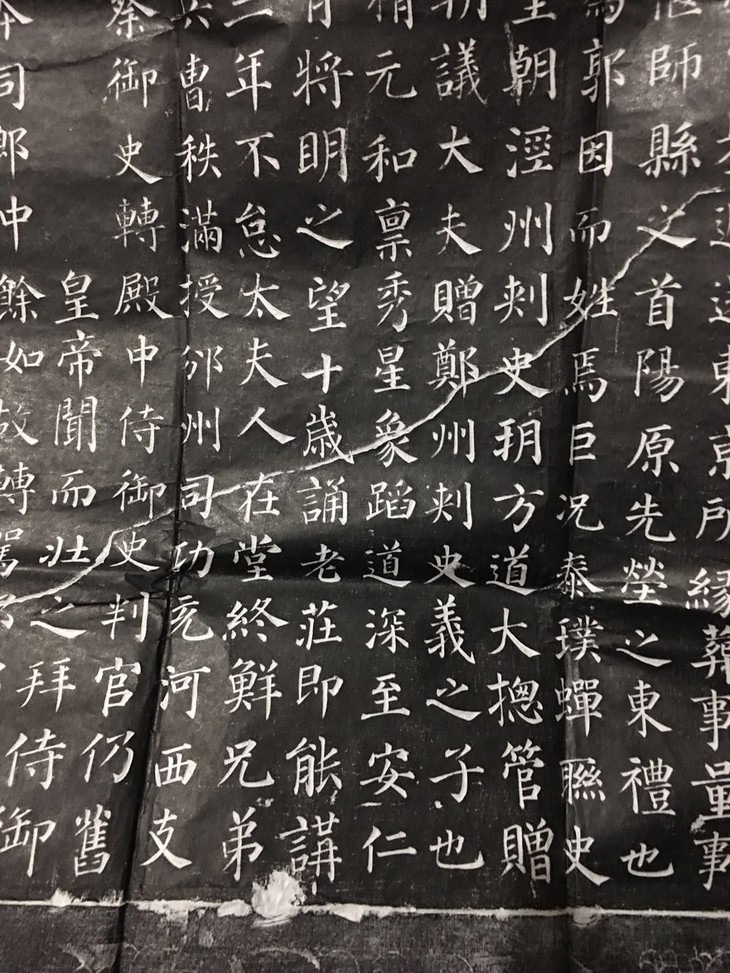 東京所緣葬事量事
偃師縣之首陽原先塋之東禮也
郭因而姓焉巨况泰璞蟬聯史
皇朝涇州刺史朔方道大揔管贈
朝議大夫贈鄭州刺史義之子也
精元和禀秀星象蹈道深至安仁
將明之望十歲誦老莊即能講
二年不怠太夫人在堂終鮮兄弟
兵曹秩滿授邠州司功充河西支
察御史轉殿中侍御史判官仍舊
皇帝聞而壯之拜侍御
本司郎中餘如故轉駕